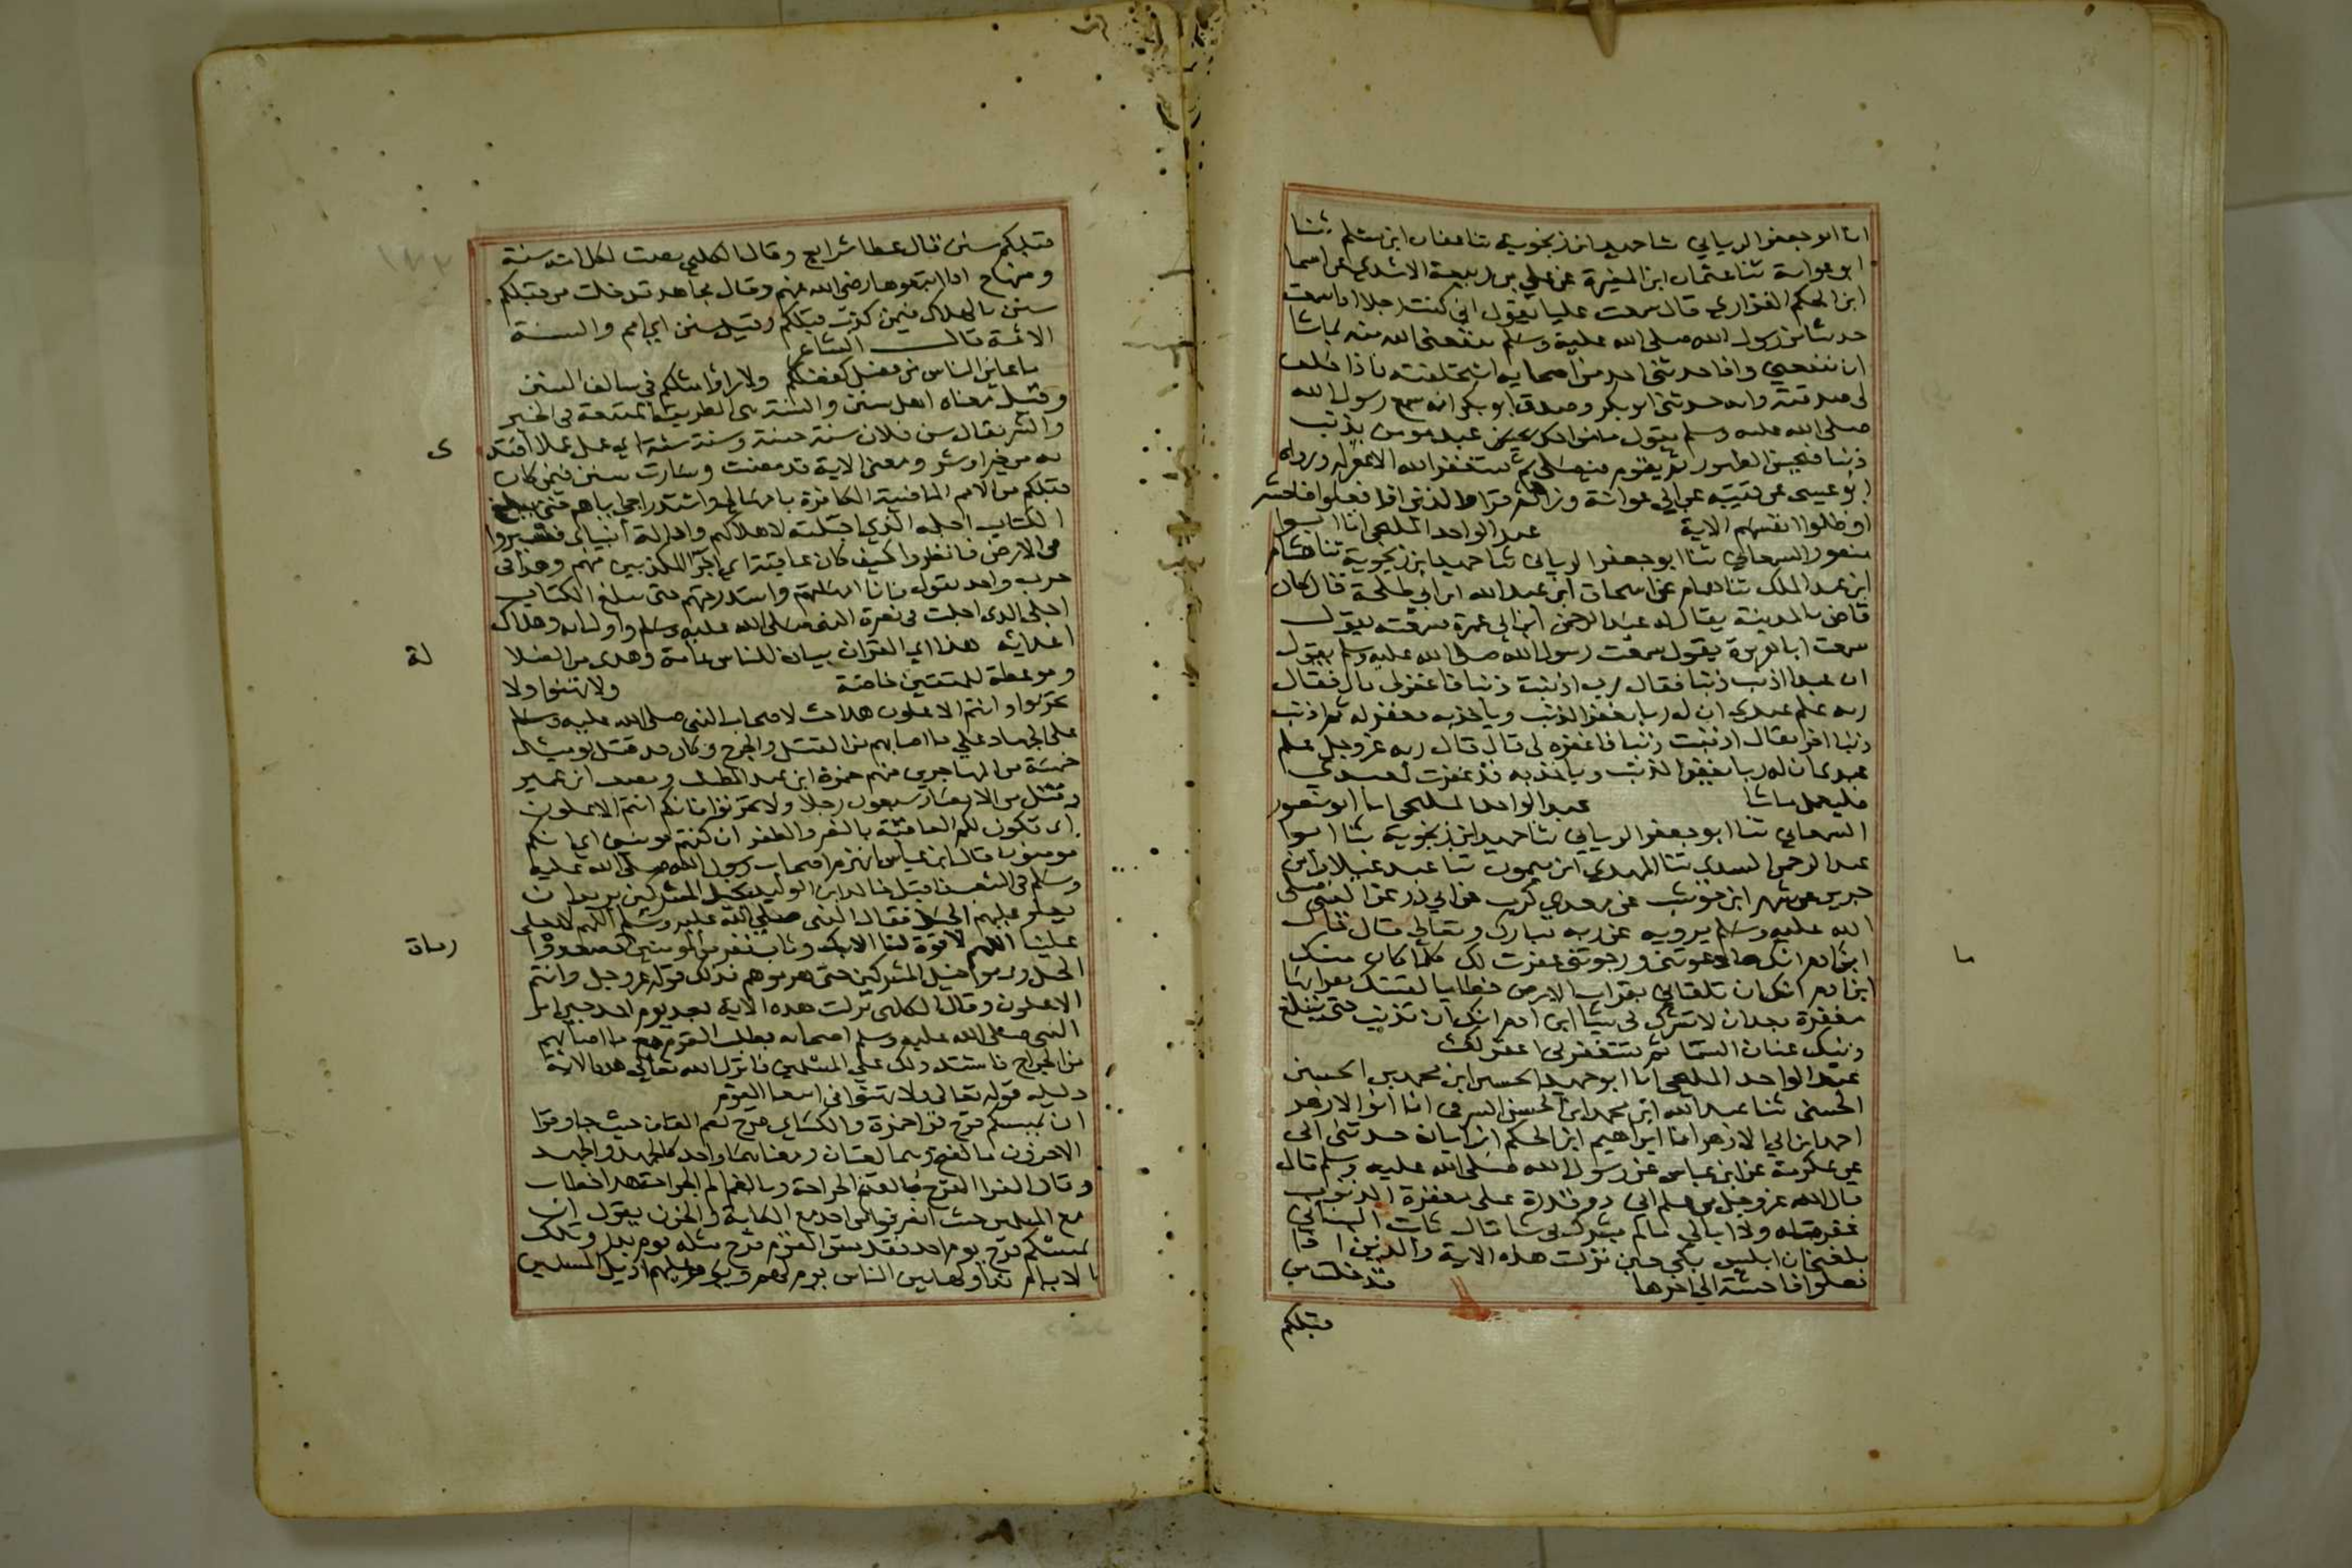 انا ابو جعفر الرياني ثنا حميد ابن زنجويه ثنا عفان ابن مسلم ثنا
ابو عوانة ثنا عثمان ابن المغيرة عن علي بن ربيعة الاسدي عن اسما
ابن الحكم الفزاري قال سمعت عليا يقول اني كنت رجلا اذا سمعت
حديثا من رسول الله صلى الله عليه وسلم ينفعني الله منه بماشا
ان ينفعني واذا حدثني احد من اصحابه استحلفته فاذا حلف
لي صدقته وانه حدثني ابو بكر وصدق ابو بكر انه سمع رسول الله
صلى الله عليه وسلم يقول ما من عبد مومن يذنب
ذنبا فيحسن الطهور ثم يقوم فيصلي ثم يستغفر الله الا غفر له ورواه
ابو عيسى عن قتيبه عن ابي عوانة وزاد ثم قرا والذين اذا فعلوا فاحشة
او ظلموا انفسهم الاية عبد الواحد المليحي انا ابو
منصور السمعاني ثنا ابو جعفر الرياني ثنا حميد ابن زنجوية ثنا هشام
ابن عبد الملك ثنا همام عن اسحاق ابن عبد الله ابن ابي طلحة قال كان
قاض بالمدينة يقال له عبد الرحمن ابن ابي عمرة سمعته يقول
سمعت ابا هريرة يقول سمعت رسول الله صلى الله عليه وسلم يقول
ان عبدا اذنب ذنبا فقال رب اذنبت ذنبا فاغفر لي قال فقال
ربه علم عبدي ان له ربا يغفر الذنب وياخذ به فغفر له ثم اذنب
ذنبا اخر فقال اذنبت ذنبا فاغفره لي قال قال ربه عز وجل علم
عبدي ان له ربا يغفر الذنب وياخذ به قد غفرت لعبدي
فليعمل ما شا عبد الواحد المليحي انا ابو منصور
السمعاني ثنا ابو جعفر الرياني ثنا حميد ابن زنجوية ثنا ابو
عبد الرحمن ثنا المهدي ابن ميمون ثنا غيلان ابن
جرير عن شهر ابن حوشب عن معدي كرب عن ابي ذر عن النبي صلى
الله عليه وسلم يرويه عن ربه تبارك وتعالى قال قال
ابن ادم انك ما دعوتني ورجوتني غفرت لك على ما كان منك
ابن ادم انك ان تلقاني بقراب الارض خطايا لقيتك بقرابها
مغفرة بعد ان لا تشرك بي شيا ابن ادم انك ان تذنب حتى يبلغ
ذنبك عنان السما ثم تستغفرني اغفر لك
عبد الواحد المليحي انا ابو حميد الحسين ابن محمد بن الحسين
الحسني ثنا عبد الله ابن محمد ابن الحسن السرقي انا ابو الازهر
احمد ابن ابي الازهر انا ابراهيم ابن الحكم ابن ابان حدثني ابي
عن عكرمة عن ابن عباس عن رسول الله صلى الله عليه وسلم قال
قال الله عز وجل من علم اني ذو قدرة على مغفرة الذنوب
غفرت له ولا ابالي ما لم يشرك بي شيا قال ثابت البناني
بلغني ان ابليس بكى حين نزلت هذه الاية والذين اذا
فعلوا فاحشة الى اخرها قد خلت من
قبلكم
ما
قبلكم سنن قال عطا شرايع وقال الكلبي مضت لكل امة سنة
ومنهاج اذا اتبعوها رضي الله عنهم وقال مجاهد قد خلت من قبلكم
سنن بالهلاك فيمن كذب قبلكم وقيل سنن اي امم والسنة
الائمة قال الشاعر
ما عاين الناس من فضل كفضلكم ولا راوا مثلكم في سالف السنن
وقيل معناه اهل سنن والسنة هي الطريقة المتبعة في الخير
والشر يقال سن فلان سنة حسنة وسنة سيئة اي عمل عملا اقتد
ى
به من خير او شر ومعنى الاية قد مضت وسارت سنن فيمن كان
قبلكم من الامم الماضية الكافرة بامهالي واستدراجي اياهم حتى يبلغ
الكتاب اجله الذي اجلته لاهلاكهم وادالة انبيائي فسيروا
في الارض فانظروا كيف كان عاقبة اي اخر المكذبين منهم وهذا في
حرب واحد يقول فانا امهلهم واستدرجهم حتى يبلغ الكتاب
اجلي الذي اجلت في نصرة النبي صلى الله عليه وسلم واوليائه وهلاك
اعدائه هذا اي القران بيان للناس عامة وهدى من الضلا
لة
وموعظة للمتقين خاصة ولا تهنوا ولا
تحزنوا وانتم الاعلون هذا حث لاصحاب النبي صلى الله عليه وسلم
على الجهاد على ما اصابهم من القتل والجرح وكان قد قتل يوميئذ
خمسة من المهاجرين منهم حمزة ابن عبد المطلب ومصعب ابن عمير
وقتل من الانصار سبعون رجلا ولا تحزنوا فانكم انتم الاعلون
اي تكون لكم العاقبة بالنصر والظفر ان كنتم مومنين اي انكم
مومنون قال ابن عباس انهزم اصحاب رسول الله صلى الله عليه
وسلم في الشعب فاقبل خالد ابن الوليد بخيل المشركين يريد ان
يعلو عليهم الجبل فقال النبي صلى الله عليه وسلم اللهم لا يعلى
علينا اللهم لا قوة لنا الا بك وثاب نفر من المومنين فصعدوا
رماة
الجبل ورموا خيل المشركين حتى هزموهم فذلك قوله عز وجل وانتم
الاعلون وقال الكلبي نزلت هذه الاية بعد يوم احد حين امر
النبي صلى الله عليه وسلم اصحابه بطلب القوم مع ما اصابهم
من الجراح فاشتد ذلك على المسلمين فانزل الله تعالى هذه الاية
دليله قوله تعالى ولا تهنوا في ابتغا القوم
ان يمسسكم قرح قرا حمزة والكسائي قرح بضم القاف حيث جا وقرا
الاخرون بالفتح وهما لغتان ومعناهما واحد كالجهد والجهد
وقال الفرا القرح بالفتح الجراحة وبالضم الم الجراحة هذا خطاب
مع المسلمين حيث انصرفوا من احد مع الكابة والحزن يقول ان
يمسسكم قرح يوم احد فقد مس القوم قرح مثله يوم بدر وتلك
الايام نداولها بين الناس يوم لهم ويوم عليهم اديل المسلمين